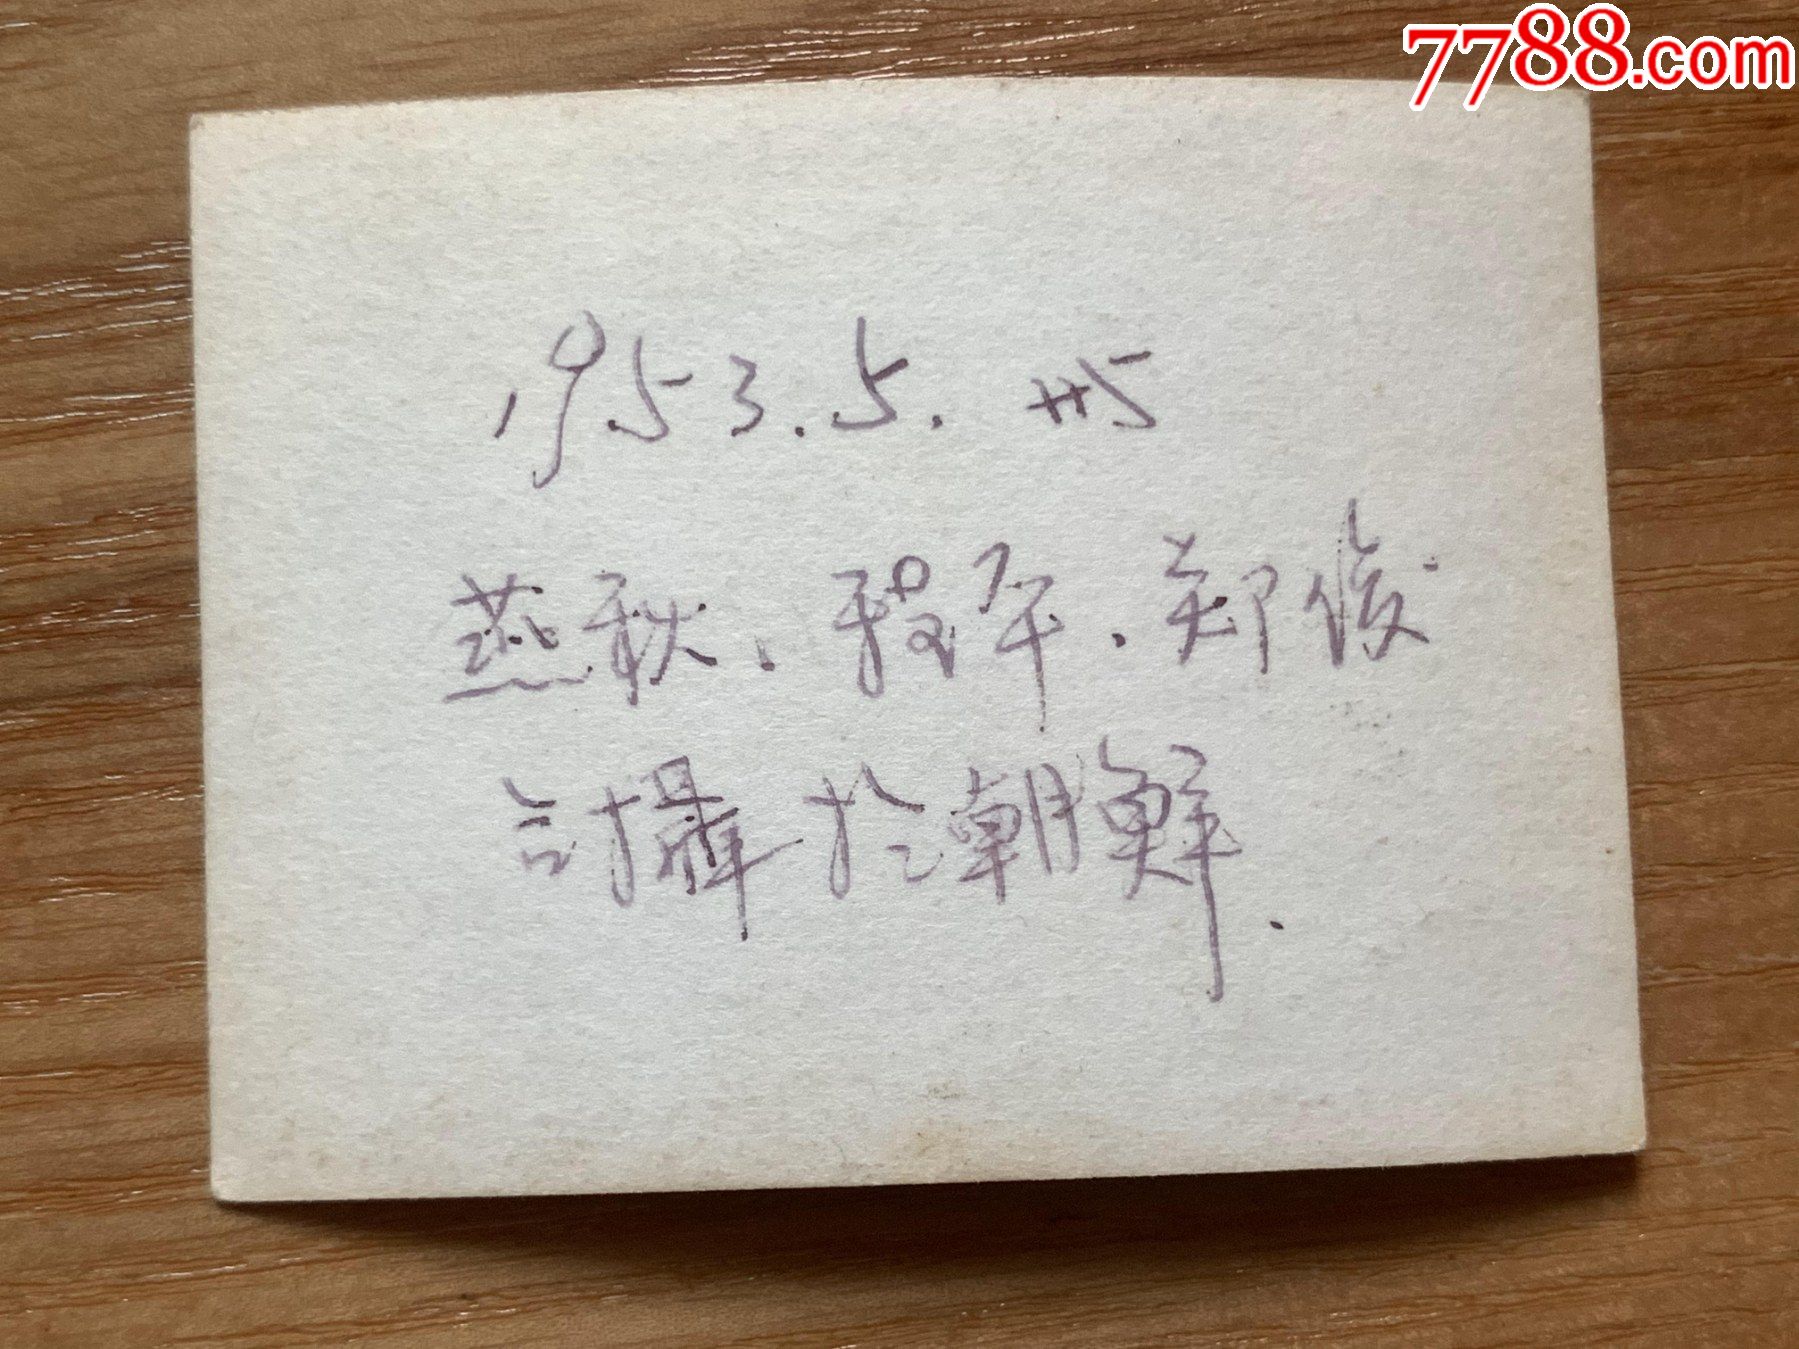 7788.com
1953.5.廿5
燕秋、程军.郑俊
合摄於朝鲜.